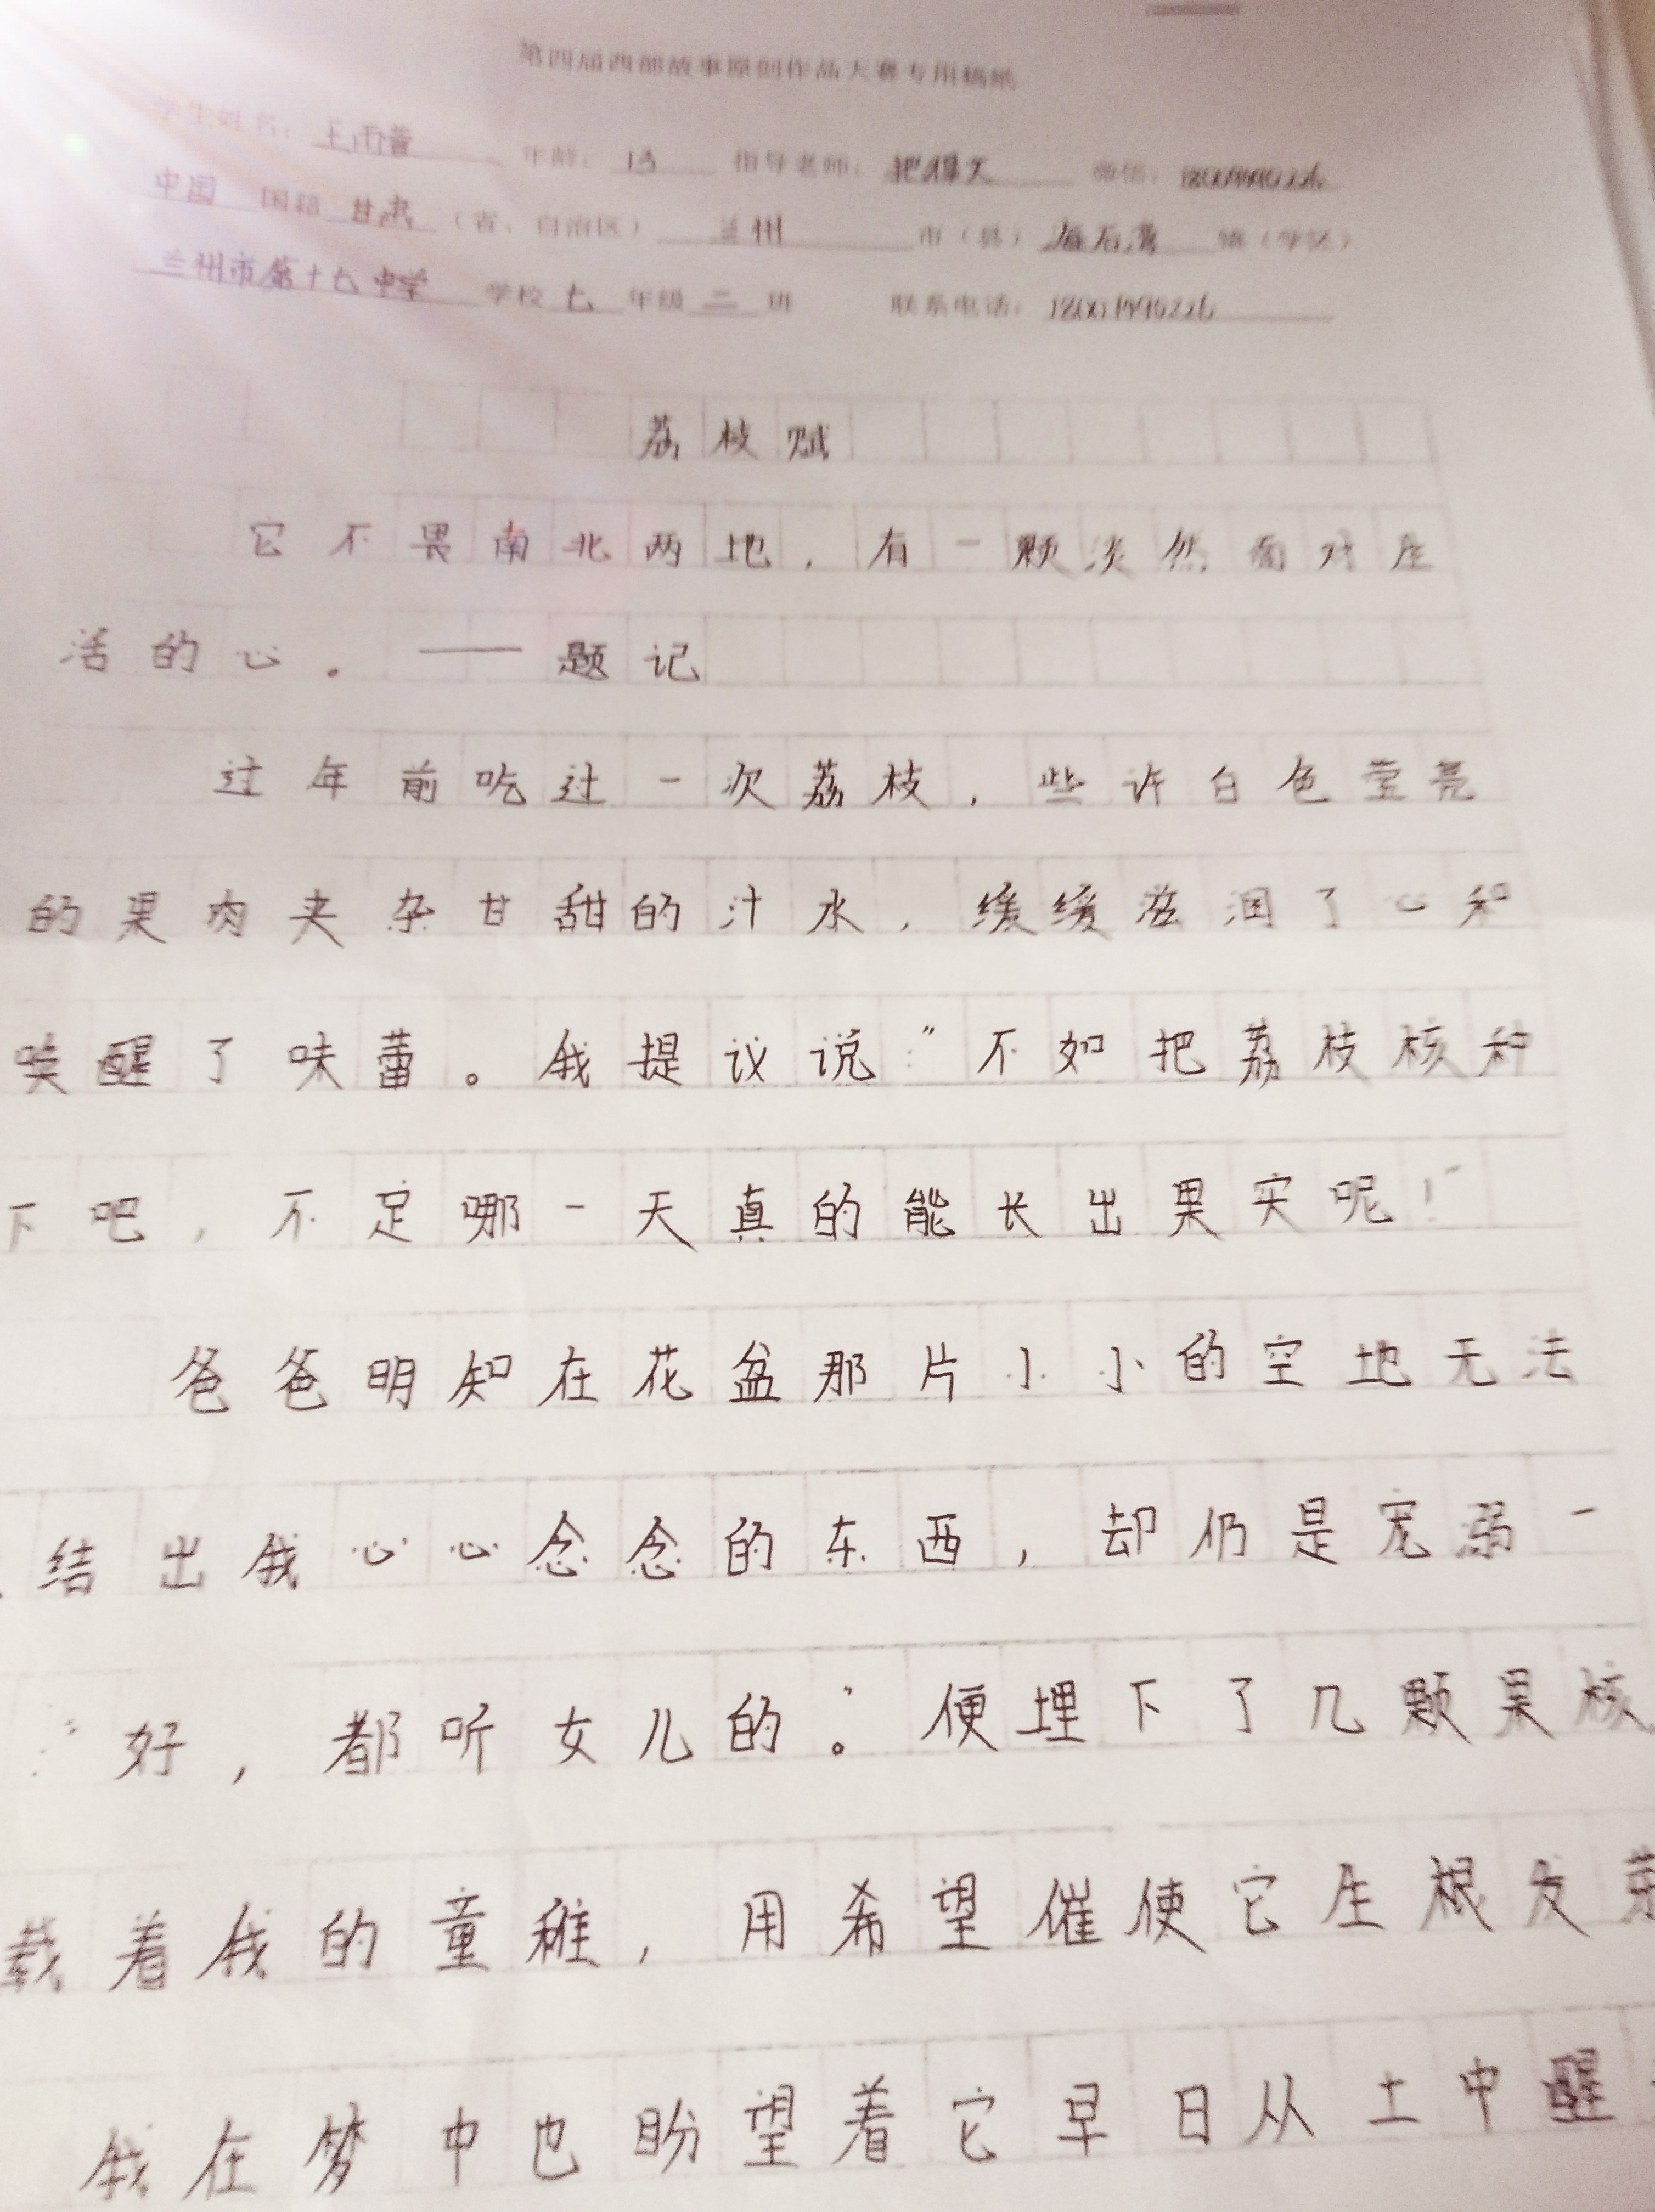 第四届西部故事原创作品大赛专用稿纸
学生姓名： 王雨 年龄：13 指导老师： 微信：
中国 国籍 甘肃（省、自治区） 兰州 市（县） 海石湾 镇（学区）
兰州市第十七中学 学校 七 年级 二 班 联系电话：
荔枝赋
它不畏南北两地，有一颗淡然面对生
活的心。——题记
过年前吃过一次荔枝，些许白色莹亮
的果肉夹杂甘甜的汁水，缓缓滋润了心和
唤醒了味蕾。我提议说：“不如把荔枝核种
下吧，不定哪一天真的能长出果实呢！”
爸爸明知在花盆那片小小的空地无法
结出我心心念念的东西，却仍是宠溺一
：“好，都听女儿的。”便埋下了几颗果核
载着我的童稚，用希望催使它生根发芽
我在梦中也盼望着它早日从土中醒